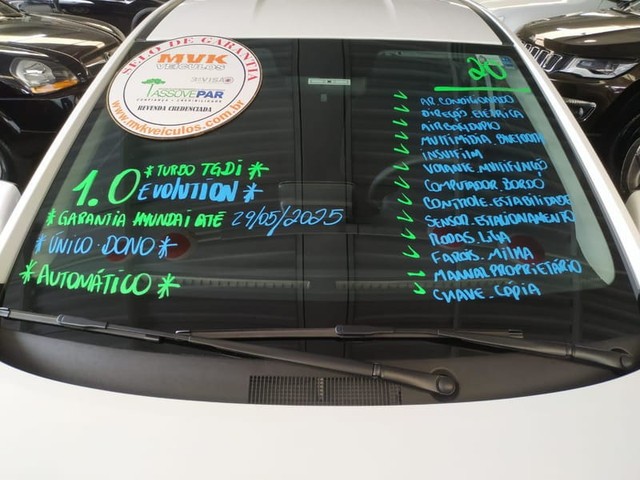 SELO DE GARANTIA
MVK
VEÍCULOS
ASSOVEPAR
CONFIANÇA E CREDIBILIDADE
REVENDA CREDENCIADA
www.mvkveiculos.com.br
* TURBO TGDI *
1.0 EVOLUTION *
* GARANTIA HYUNDAI ATÉ 29/05/2025
* ÚNICO DONO *
* AUTOMÁTICO *
20
AR CONDICIONADO
DIREÇÃO ELÉTRICA
AIRBAG/DUPLO
MULTIMÍDIA BLUETOOTH
INSULFILM
VOLANTE MULTIFUNÇÃO
COMPUTADOR BORDO
CONTROLE ESTABILIDADE
SENSOR ESTACIONAMENTO
RODAS. LIGA
FAROIS. MILHA
MANUAL PROPRIETÁRIO
CHAVE. CÓPIA